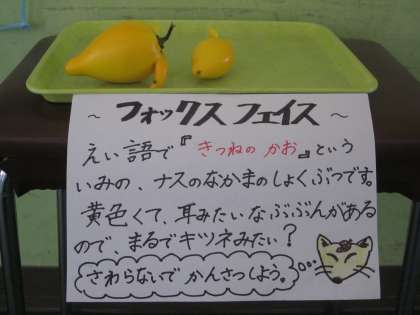 ～フォックス フェイス～
えい語で『きつねの かお』という
いみの、ナスのなかまのしょくぶつです。
黄色くて、耳みたいなぶぶんがある
ので、まるでキツネみたい？
さわらないで かんさつしよう。